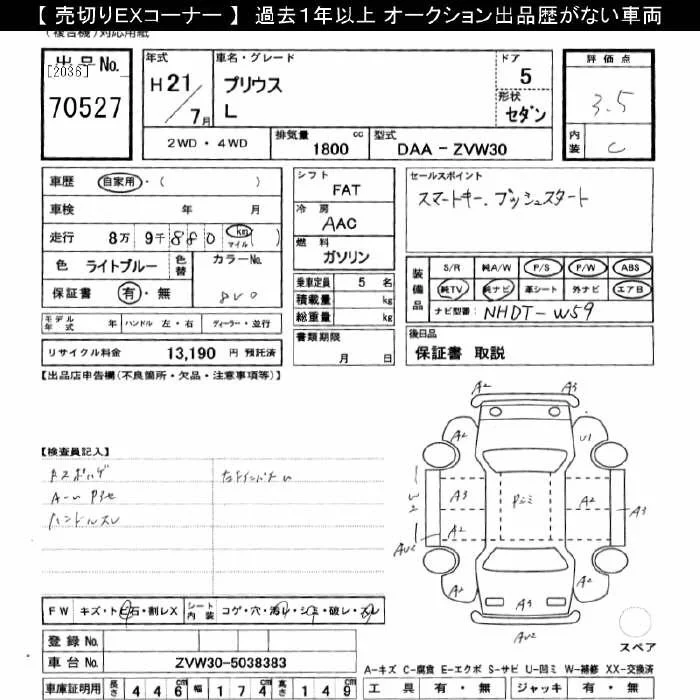 【 売切りEXコーナー 】 過去1年以上 オークション出品歴がない車両
(複合機)対応用紙
出品No.
[2036]
70527
年式
H21/7月
車名・グレード
プリウス
L
ドア
5
形状
セダン
評価点
3.5
内装
C
2WD・4WD
排気量 1800 cc
型式 DAA-ZVW30
車歴 自家用・( )
車検 年 月
走行 8万 9千 880 km マイル ( )
色 ライトブルー 色替 カラーNo. 8V0
保証書 有・無
シフト
FAT
冷房
AAC
燃料
ガソリン
乗車定員 5 名
積載量 kg
総重量 kg
書類期限
月 日
セールスポイント
スマートキー.プッシュスタート
装備品
S/R 純A/W P/S P/W ABS
純TV 純ナビ 革シート 外ナビ エアB
ナビ型番: NHDT-W59
後日品
保証書 取説
モデル年式 年 ハンドル 左・右 ディーラー・並行
リサイクル料金 13,190 円 預託済
【出品店申告欄(不良箇所・欠品・注意事項等)】
【検査員記入】
ハンドルスレ
A2
A3
A2
U1
A3
A2
W2
A2
A3
AU2
A2
A2
A3
AU2
スペア
FW キズ・トビ石・割レX シート内装 コゲ・穴・汚レ・シミ・破レ・スレ
登録No.
車台No. ZVW30-5038383
車庫証明用 長さ 446 幅 174 高さ 149
A-キズ C-腐食 E-エクボ S-サビ U-凹ミ W-補修 XX-交換済
工具 有・無 ジャッキ 有・無